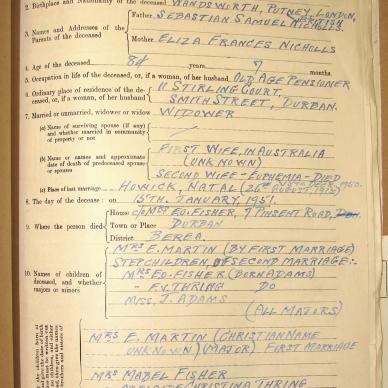 2. Birthplace and Nationality of the deceased WANDSWORTH, PUTNEY, LONDON,
3. Names and Addresses of the Parents of the deceased
Father SEBASTIAN SAMUEL NICHOLLS.
Mother ELIZA FRANCES NICHOLLS
4. Age of the deceased 84 years 7 months.
5. Occupation in life of the deceased, or, if a woman, of her husband OLD AGE PENSIONER
6. Ordinary place of residence of the deceased, or, if a woman, of her husband
11 STIRLING COURT,
SMITH STREET, DURBAN.
7. Married or unmarried, widower or widow WIDOWER
(a) Name of surviving spouse (if any) and whether married in community of property or not
(b) Name or names and approximate date of death of predeceased spouse or spouses
FIRST WIFE, IN AUSTRALIA
(UNKNOWN)
SECOND WIFE - EUPHEMIA - DIED
(c) Place of last marriage HOWICK, NATAL (26TH AUGUST,
8. The day of the decease: on 15TH. JANUARY, 1951.
9. Where the person died
House c/o MRS EO. FISHER, 7 PINSENT ROAD,
Town or Place DURBAN
District BEREA.
10. Names of children of deceased, and whether majors or minors
MRS E. MARTIN (BY FIRST MARRIAGE)
STEPCHILDREN, OF SECOND MARRIAGE:-
MRS EO. FISHER (BORN ADAMS)
- F.V. THRING DO
MISS. J. ADAMS
(ALL MAJORS)
MRS E. MARTIN (CHRISTIAN NAME
UNKNOWN) (MAJOR) FIRST MARRIAGE
MRS MABEL FISHER
CHRISTINA THRING